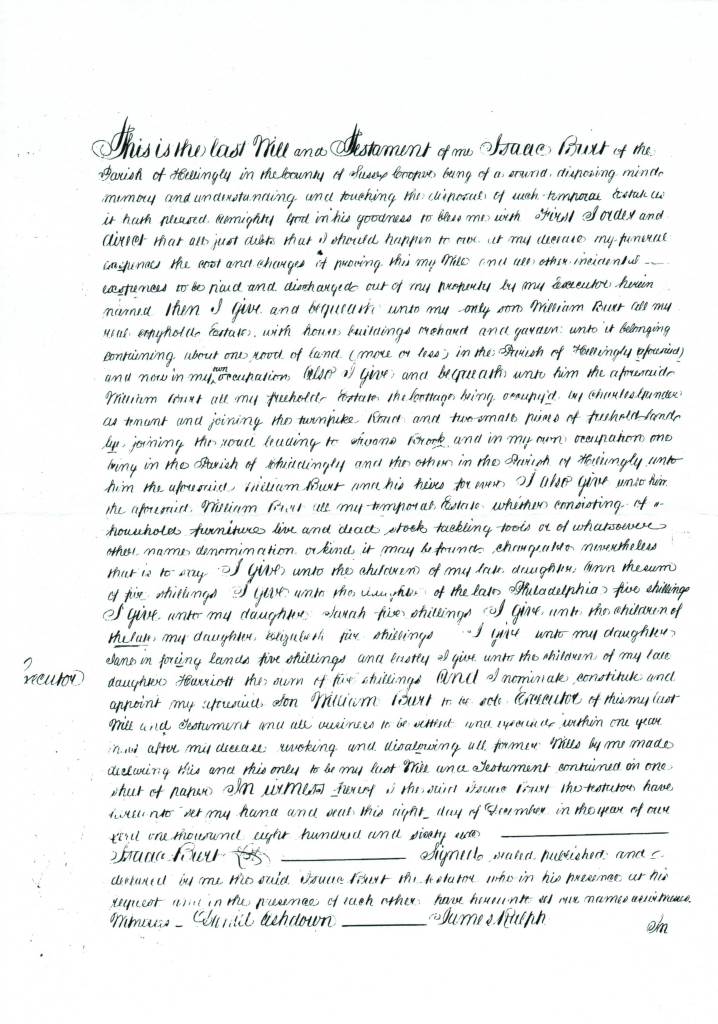 This is the last Will and Testament of me Isaac Burt of the
Parish of Hellingly in the County of Sussex Cooper being of a sound disposing mind
memory and understanding and touching the disposal of such temporal Estate as
it hath pleased Almighty God in his goodness to bless me with First I order and
direct that all just debts that I should happen to owe at my decease my funeral
expences the cost and charges of proving this my Will and all other incidental
expences to be paid and discharged out of my property by my Executor herein
named then I give and bequeath unto my only son William Burt all my
real copyhold Estate with house buildings orchard and garden unto it belonging
containing about one rood of land (more or less) in the Parish of Hellingly aforesaid)
and now in my own occupation also I give and bequeath unto him the aforesaid
William Burt all my freehold Estate the Cottage being occupy'd by Charles
as tenant and joining the turnpike Road and two small pieces of freehold land
joining the road leading to Swans Brook and in my own occupation one
being in the Parish of Chiddingly and the other in the Parish of Hellingly unto
him the aforesaid William Burt and his heirs for ever I also give unto him
the aforesaid William Burt all my temporal Estate whether consisting of
household furniture live and dead stock tackling tools or of whatsoever
other name denomination or kind it may be found chargeable nevertheless
that is to say I give unto the children of my late daughter Ann the sum
of five shillings I give unto the daughter of the late Philadelphia five shillings
I give unto my daughter Sarah five shillings I give unto the children of
the late my daughter Elizabeth five shillings I give unto my daughter
Jane in foreing lands five shillings and lastly I give unto the children of my late
daughter Harriott the sum of five shillings And I nominate constitute and
Executor
appoint my aforesaid Son William Burt to be sole Executor of this my last
Will and Testament and all business to be settled and executed within one year
next after my decease revoking and disalowing all former Wills by me made
declaring this and this only to be my last Will and Testament contained in one
sheet of paper In witness hereof I the said Isaac Burt the testator have
hereunto set my hand and seal this eight day of December in the year of our
Lord one thousand eight hundred and sixty
Isaac Burt Signed sealed published and
declared by me the said Isaac Burt the testator who in his presence at his
request and in the presence of each other have hereunto set our names as witnesses
Witnesses David Ashdown James Ralph
In